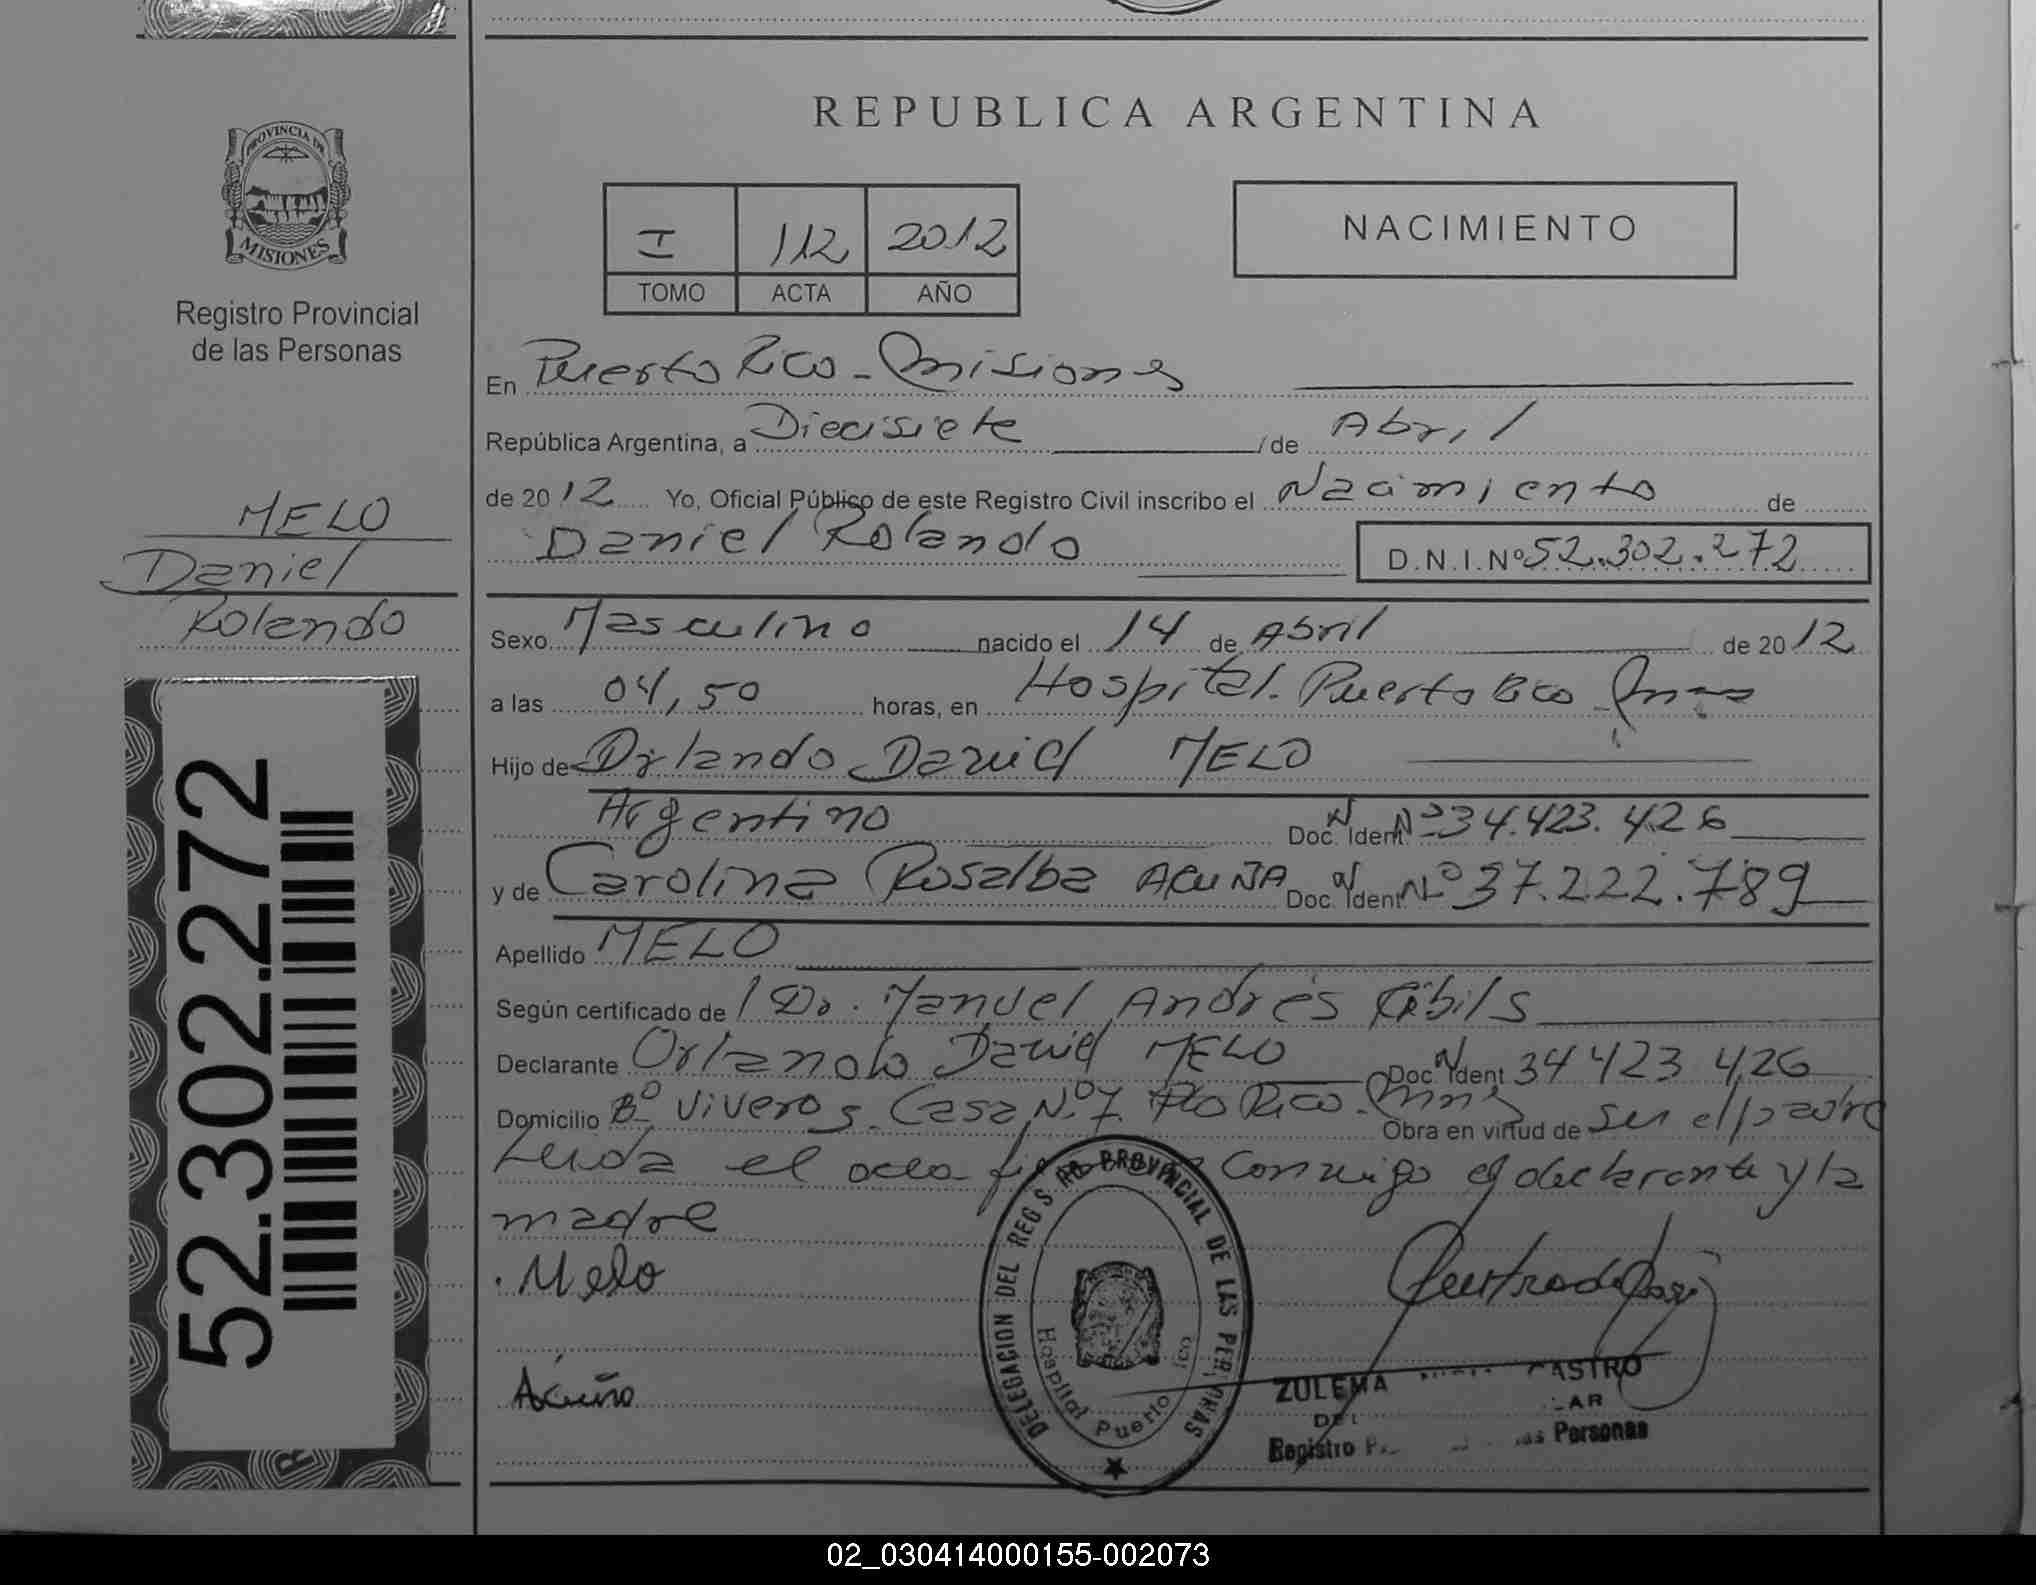 REPUBLICA ARGENTINA
PROVINCIA DE
MISIONES
Registro Provincial
de las Personas
I 112 2012
TOMO ACTA AÑO
NACIMIENTO
En Puerto Rico - Misiones
República Argentina, a Diecisiete / de Abril
de 2012 Yo, Oficial Público de este Registro Civil inscribo el Nacimiento de
Daniel Rolando D.N.I.Nº 52.302.272
MELO
Daniel
Rolando
Sexo Masculino nacido el 14 de Abril de 2012
a las 04,50 horas, en Hospital. Puerto Rico -
Hijo de Orlando Daniel MELO
Argentino Doc. N. Ident Nº 34.423.426
y de Carolina Rosalba ACUÑA Doc. N. Ident Nº 37.222.789
Apellido MELO
Según certificado de / Dr. Manuel Andrés Cibils
Declarante Orlando Daniel MELO Doc. N. Ident 34 423 426
Domicilio Bº Viveros. Casa Nº 7. Pto Rico - Mnes Obra en virtud de ser el padre
Leida el acta conmigo el declarante y la
madre
. Melo
Acuña
52.302.272
DELEGACION DEL REG PROVINCIAL DE LAS PERSONAS
Hospital Puerto Rico
ZULEMA CASTRO
Registro Personas
02_030414000155-002073